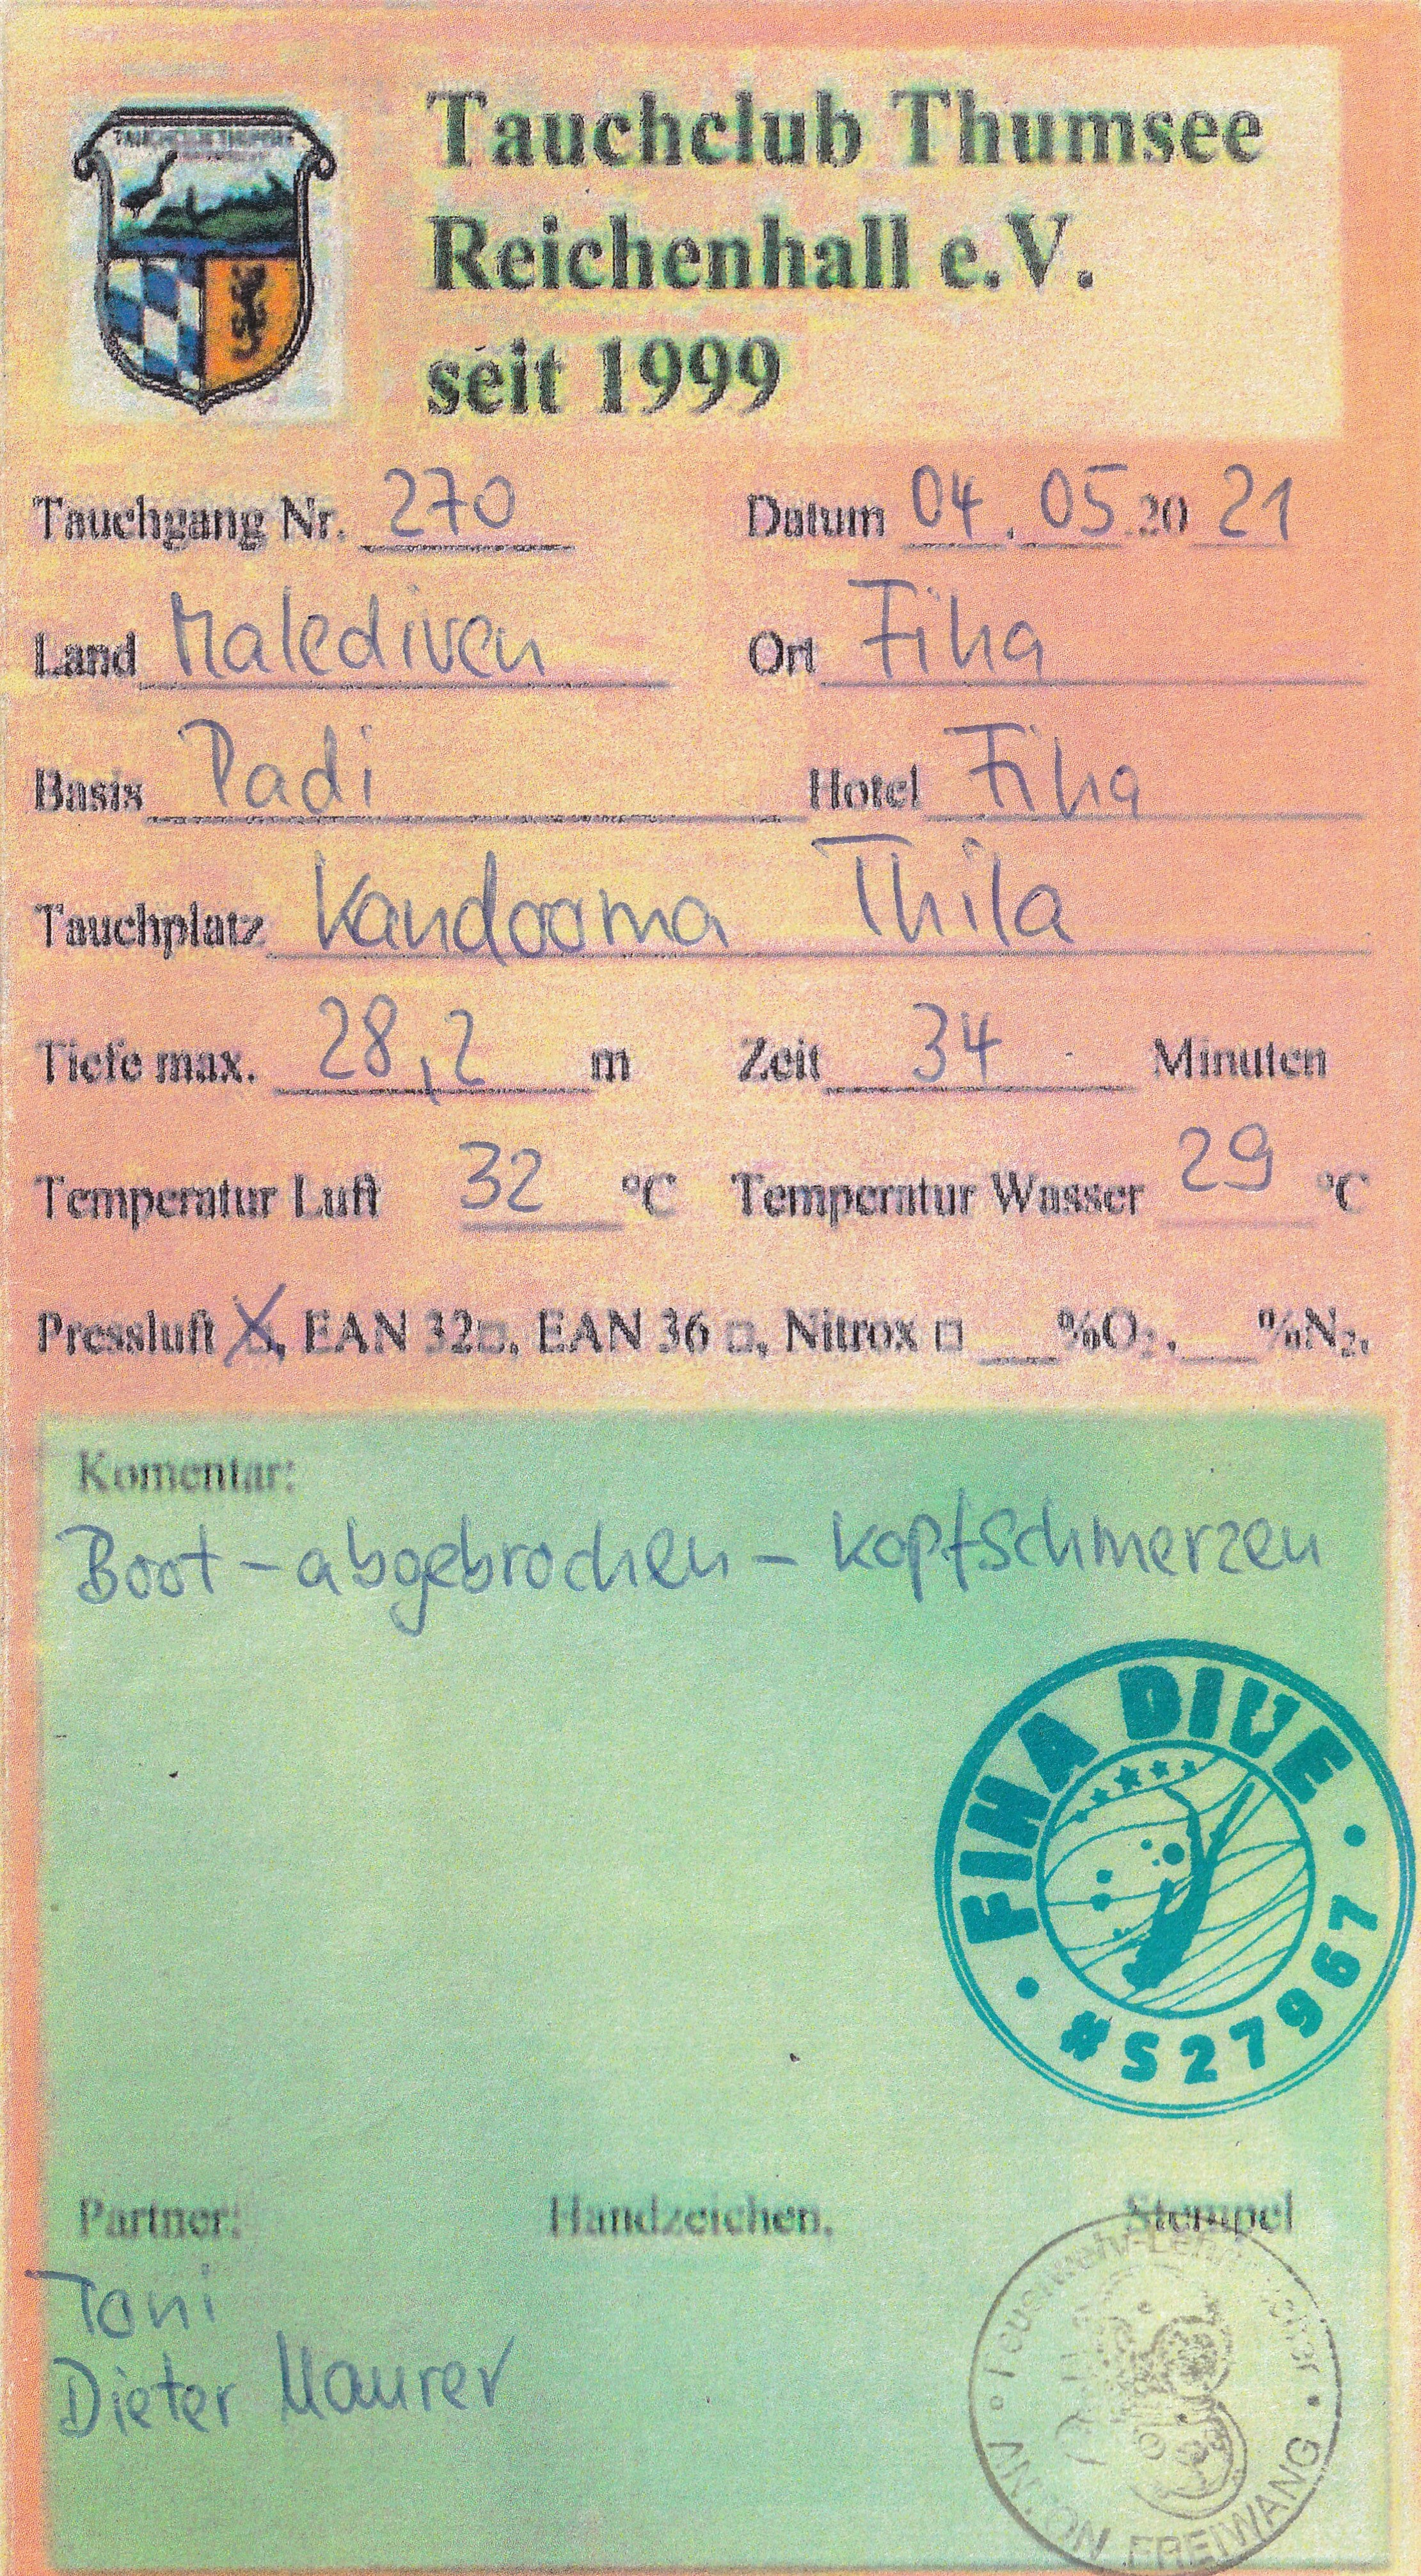 Tauchclub Thumsee
Reichenhall e.V.
seit 1999
Tauchgang Nr. 270 Datum 04.05.2021
Land Malediven Ort Fiha
Basis Padi Hotel Fiha
Tauchplatz Kandooma Thila
Tiefe max. 28,2 m Zeit 34 Minuten
Temperatur Luft 32 °C Temperatur Wasser 29 °C
Pressluft ☒, EAN 32□, EAN 36 □, Nitrox □ ___%O₂, ___%N₂,
Komentar:
Boot – abgebrochen – Kopfschmerzen
FIHA DIVE
#S27967
Partner: Handzeichen, Stempel
Toni
Dieter Maurer
ANTON FREIWANG